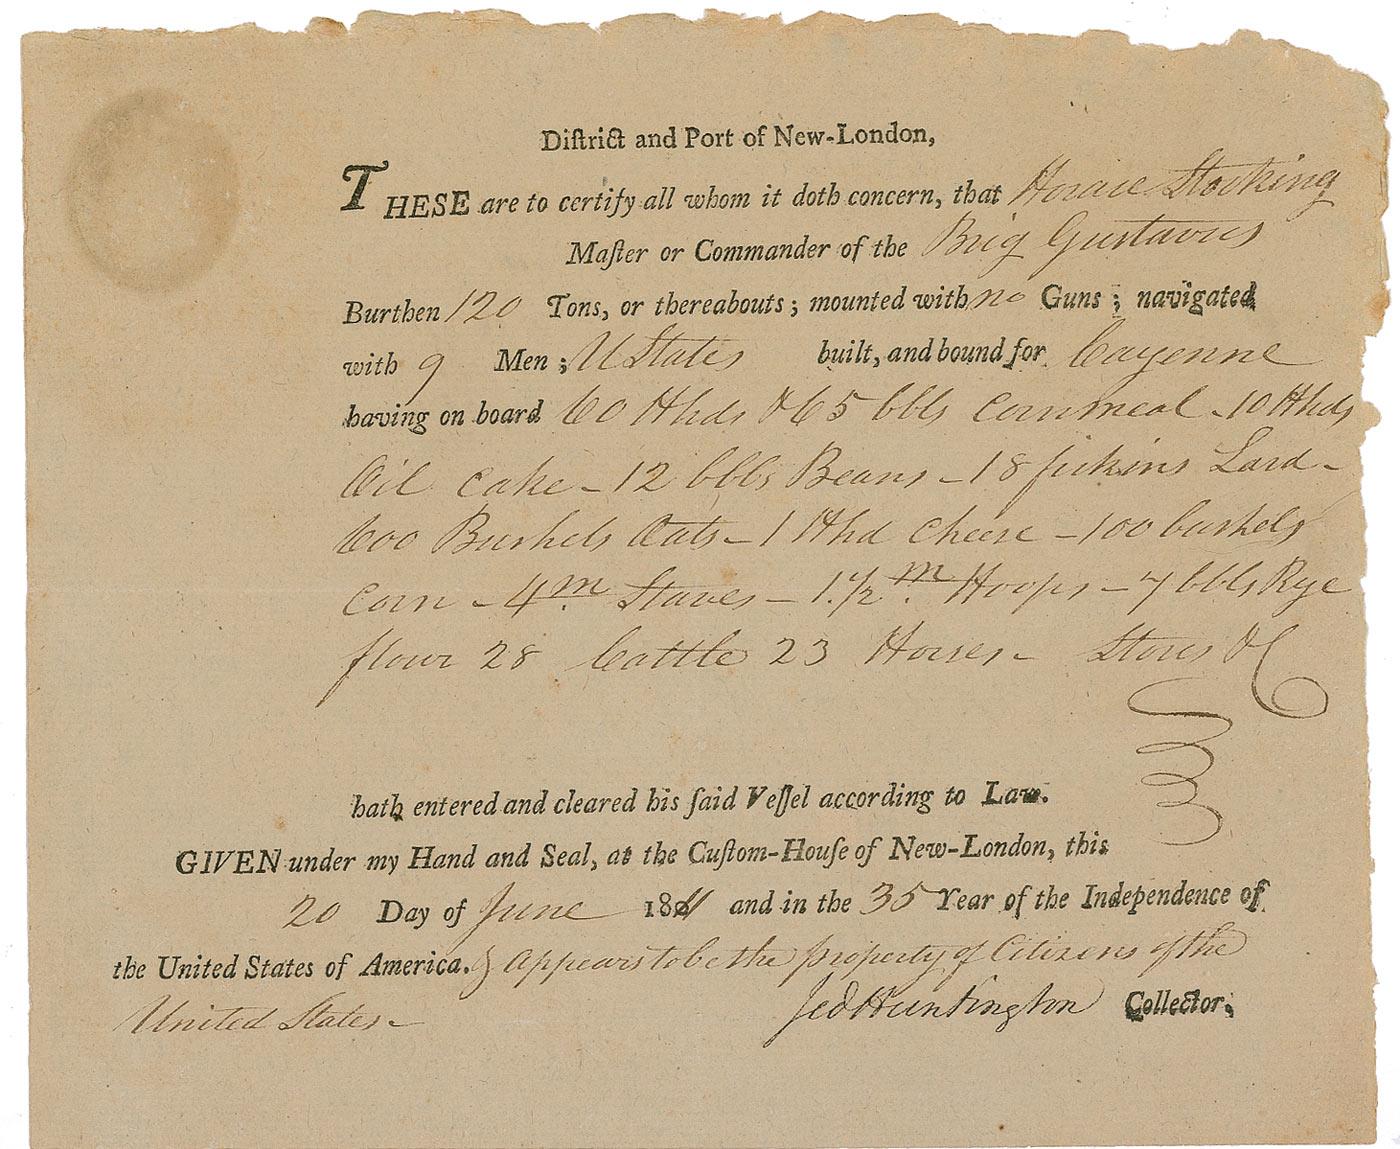 Diſtrict and Port of New-London,
THESE are to certify all whom it doth concern, that Horace Stocking
Maſter or Commander of the Brig Gustavus
Burthen 120 Tons, or thereabouts; mounted with no Guns; navigated
with 9 Men; U States built, and bound for Cayenne
having on board 60 Hhds & 65 bbls Cornmeal - 10 Hhds
Oil Cake - 12 bbls Beans - 18 firkins Lard -
600 Bushels Oats - 1 Hhd Cheese - 100 bushels
Corn - 4 m. Staves - 1 1/2 m. Hoops - 7 bbls Rye
flour 28 Cattle 23 Horses - Stores &c
hath entered and cleared his ſaid Veſſel according to Law.
GIVEN under my Hand and Seal, at the Cuſtom-Houſe of New-London, this
20 Day of June 1811 and in the 35 Year of the Independence of
the United States of America. & Appears to be the property of Citizens of the
United States - Jed Huntington Collector.